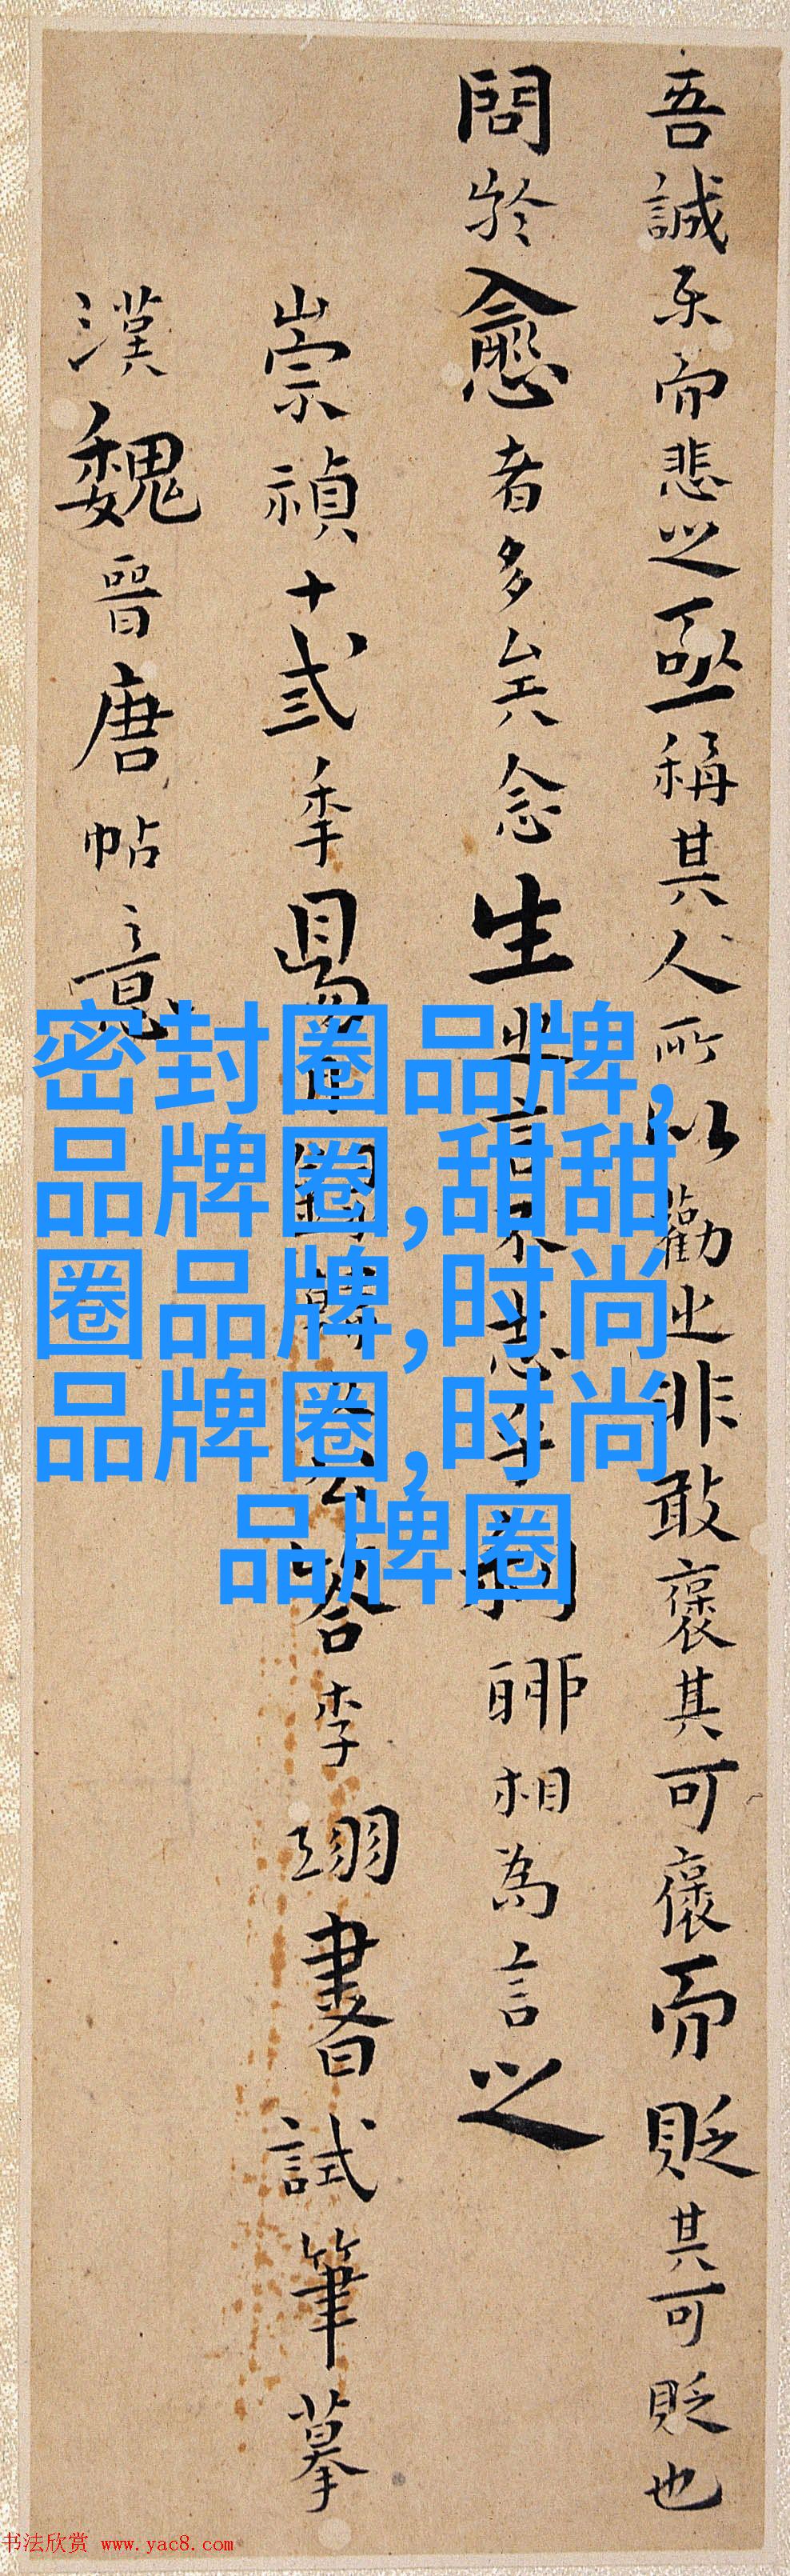 吾誠樂而悲之亟稱其人所以勸之非敢褒其可褒而貶其可貶也
問於愈者多矣念生之言不志乎利聊相為言之
崇禎十弍季
答李翊書試筆摹
漢魏晉唐帖意
密封圈品牌,
品牌圈,甜甜
圈品牌,时尚
品牌圈,时尚
品牌圈
书法欣赏 www.yac8.com